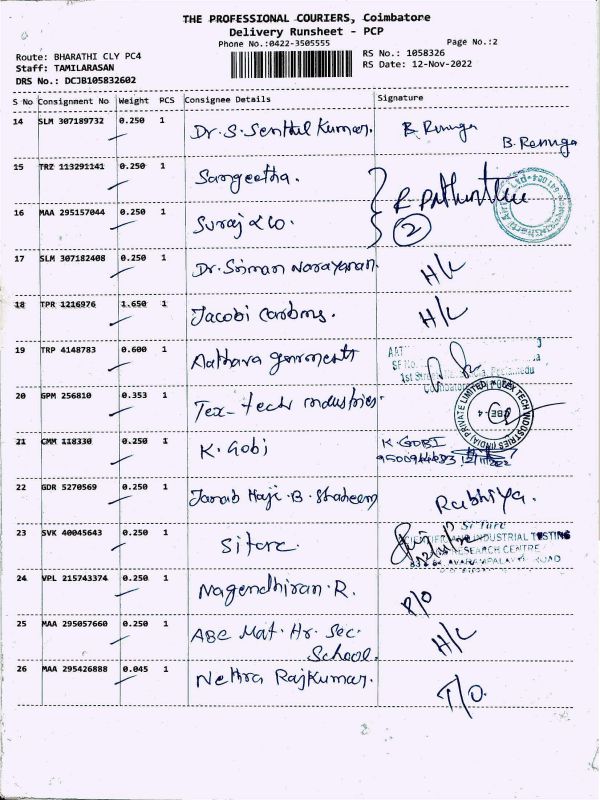 THE PROFESSIONAL COURIERS, Coimbatore
Delivery Runsheet - PCP
Phone No.:0422-3505555
Page No.:2
Route: BHARATHI CLY PC4
Staff: TAMILARASAN
DRS No.: DCJB105832602
RS No.: 1058326
RS Date: 12-Nov-2022
S No Consignment No Weight PCS Consignee Details Signature
14 SLM 307189732 0.250 1 Dr. S. Senthil Kumar. B. Renuga
B. Renuga
15 TRZ 113291141 0.250 1 Sangeetha.
16 MAA 295157044 0.250 1 Suraj & co. 2
17 SLM 307182408 0.250 1 Dr. Sriman Narayanan. H/L
18 TPR 1216976 1.650 1 Jacobi Carbons. H/L
19 TRP 4148783 0.600 1 Aathava garments
20 GPM 256810 0.353 1 Tex-tech industries.
TEX TECH INDUSTRIES (INDIA) PRIVATE LIMITED
CBE-4
21 CMM 118330 0.250 1 K. Gobi K. GOBI
22 GDR 5270569 0.250 1 Janab Haji. B. Shaheem Rabhiya.
23 SVK 40045643 0.250 1 Sitarc. SiTarc
AND INDUSTRIAL TESTING
RESEARCH CENTRE
ROAD
24 VPL 215743374 0.250 1 Nagendhiran. R. P/O
25 MAA 295057660 0.250 1 ABC Mat. Hr. Sec. H/L
School.
26 MAA 295426888 0.045 1 Nethra Rajkumar. T/O.